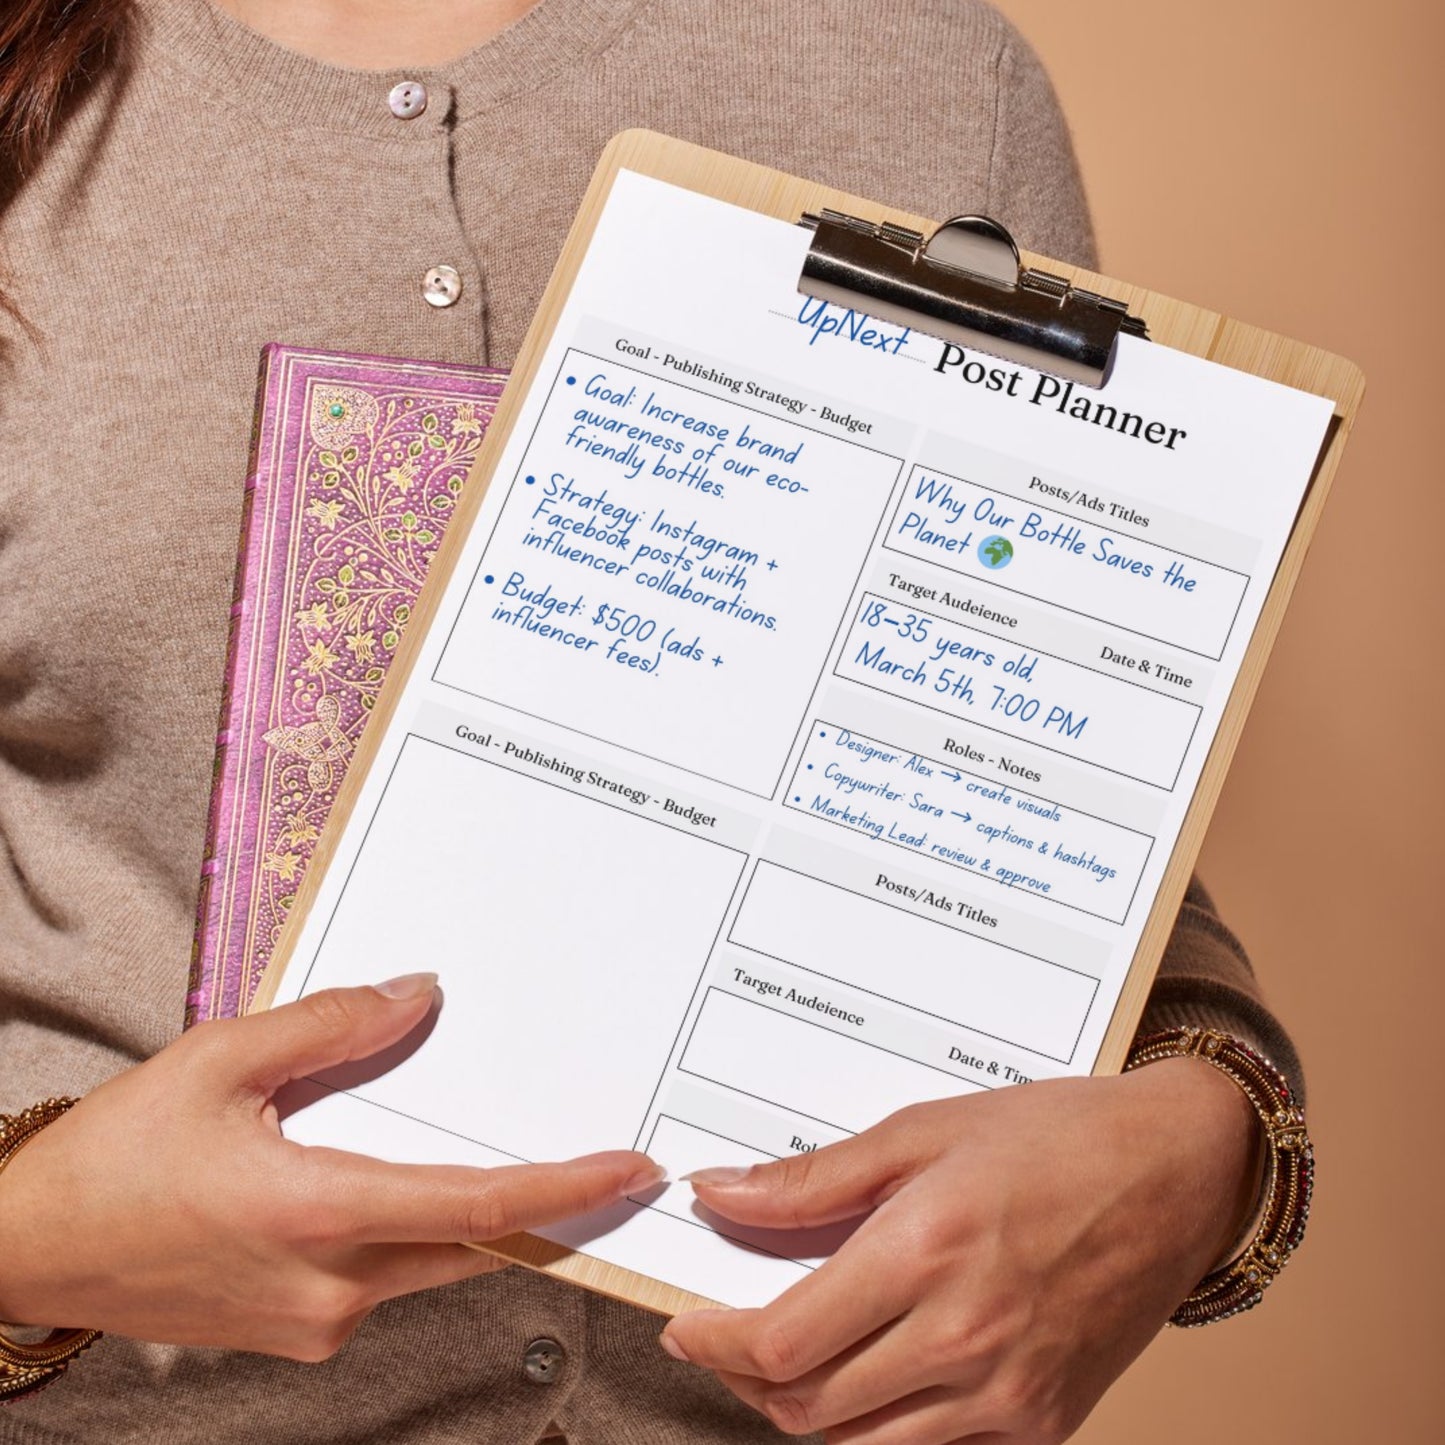 UpNext Post Planner
Goal - Publishing Strategy - Budget
• Goal: Increase brand
awareness of our eco-
friendly bottles.
• Strategy: Instagram +
Facebook posts with
influencer collaborations.
• Budget: $500 (ads +
influencer fees).
Posts/Ads Titles
Why Our Bottle Saves the
Planet 🌍
Target Audeience
Date & Time
18–35 years old,
March 5th, 7:00 PM
Roles - Notes
• Designer: Alex → create visuals
• Copywriter: Sara → captions & hashtags
• Marketing Lead: review & approve
Goal - Publishing Strategy - Budget
Posts/Ads Titles
Target Audeience
Date & Tim
Rol